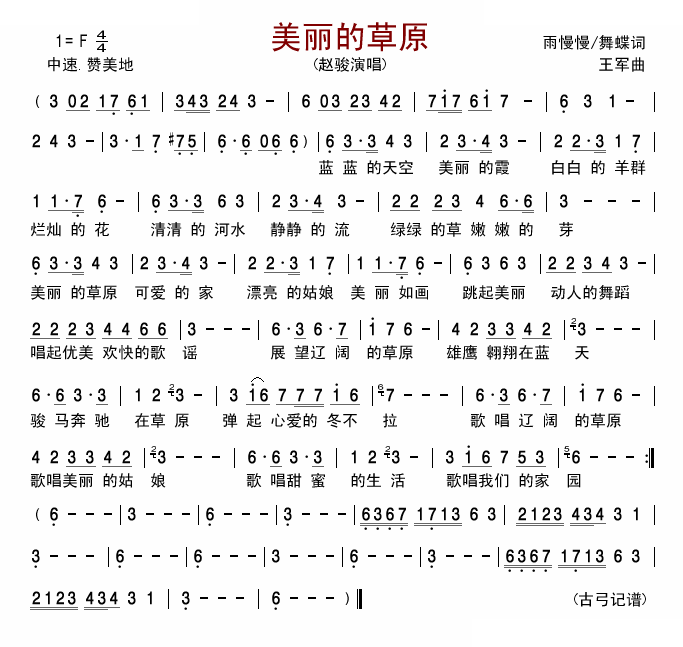 美丽的草原
1= F 4/4
雨慢慢/舞蝶词
中速. 赞美地
(赵骏演唱)
王军曲
( 3 02 17 61 | 343 24 3 - | 6 03 23 42 | 7i7 6i 7 - | 6 3 1 - |
2 4 3 - | 3·1 7 #75 | 6·6 06 6 ) | 6 3·3 4 3 | 2 3·4 3 - | 2 2·3 1 7 |
蓝 蓝 的天空 美丽 的霞 白白 的 羊群
1 1·7 6 - | 6 3·3 6 3 | 2 3·4 3 - | 22 23 4 6·6 | 3 - - - |
烂灿 的 花 清清 的 河水 静静 的 流 绿绿 的草 嫩 嫩 的 芽
6 3·3 4 3 | 2 3·4 3 - | 2 2·3 1 7 | 1 1·7 6 - | 6 3 6 3 | 2 2 3 4 3 - |
美丽 的草原 可爱 的 家 漂亮 的姑娘 美 丽 如画 跳起美丽 动人的舞蹈
22 23 44 66 | 3 - - - | 6·3 6·7 | i 7 6 - | 42 33 42 | 23 - - - |
唱起优美 欢快的歌 谣 展 望辽 阔 的草原 雄鹰 翱翔在蓝 天
6·6 3·3 | 1 2 23 - | 3 i6 777 i6 | 67 - - - | 6·3 6·7 | i 7 6 - |
骏 马奔 驰 在草 原 弹 起 心爱的 冬不 拉 歌 唱 辽 阔 的草原
42 33 42 | 23 - - - | 6·6 3·3 | 1 2 23 - | 3 i6 7 53 | 56 - - - :‖
歌唱美丽 的姑 娘 歌 唱甜 蜜 的生 活 歌唱我们 的家 园
( 6 - - - | 3 - - - | 6 - - - | 3 - - - | 6367 1713 6 3 | 2123 434 3 1 |
3 - - - | 6 - - - | 6 - - - | 3 - - - | 6 - - - | 3 - - - | 6367 1713 6 3 |
2123 434 3 1 | 3 - - - | 6 - - - ) ‖
(古弓记谱)